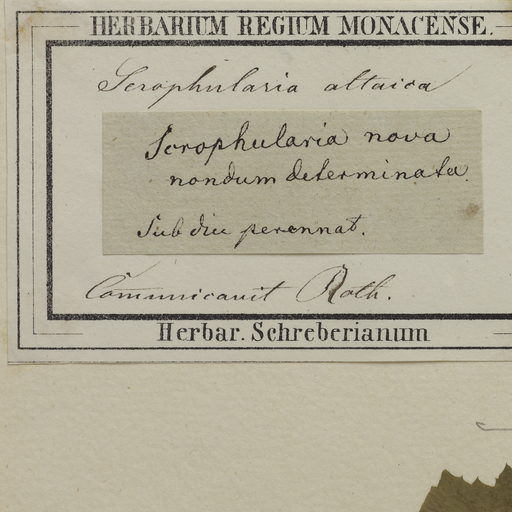 HERBARIUM REGIUM MONACENSE.
Scrophularia altaica
Scrophularia nova
nondum determinata.
Sub diu perennat.
Communicavit Roth.
Herbar. Schreberianum